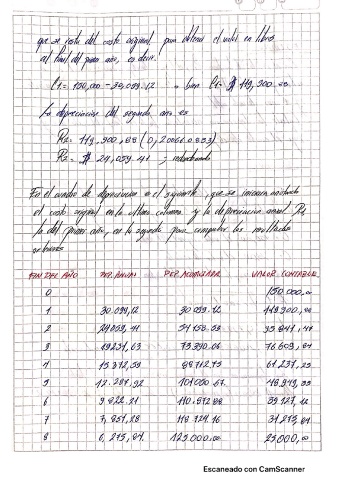 que se resta del costo original para obtener el valor en libros
al final del primer año, es decir.
C1 = 150,000 - 30,099.12 o bien C1 = $ 119,900.88
La depreciación del segundo año es
R2 = 119,900,88 (0,20066.0883)
R2 = $ 24,059.41 ;
En el cuadro de depreciación es el siguiente, que se inicia anotando
el costo original en la última columna y la depreciación anual R1
la del primer año, en la segunda para completar los resultados
FIN DEL AÑO DEP. ANUAL DEP. ACUMULADA VALOR CONTABLE
0 150.000,00
1 30.099,12 30 099.12 119 900,88
2 24059,41 54 158.53 95 841,48
3 19231,63 73 390.06 76 609,84
4 15 372,59 88 762.75 61 237,25
5 12.287,92 101 050.67 48 949,33
6 9.822.21 110.872.88 39 127,12
7 7,851,28 118 724.16 31 275,84
8 6,275,84 125 000.00 25 000,00
Escaneado con CamScanner